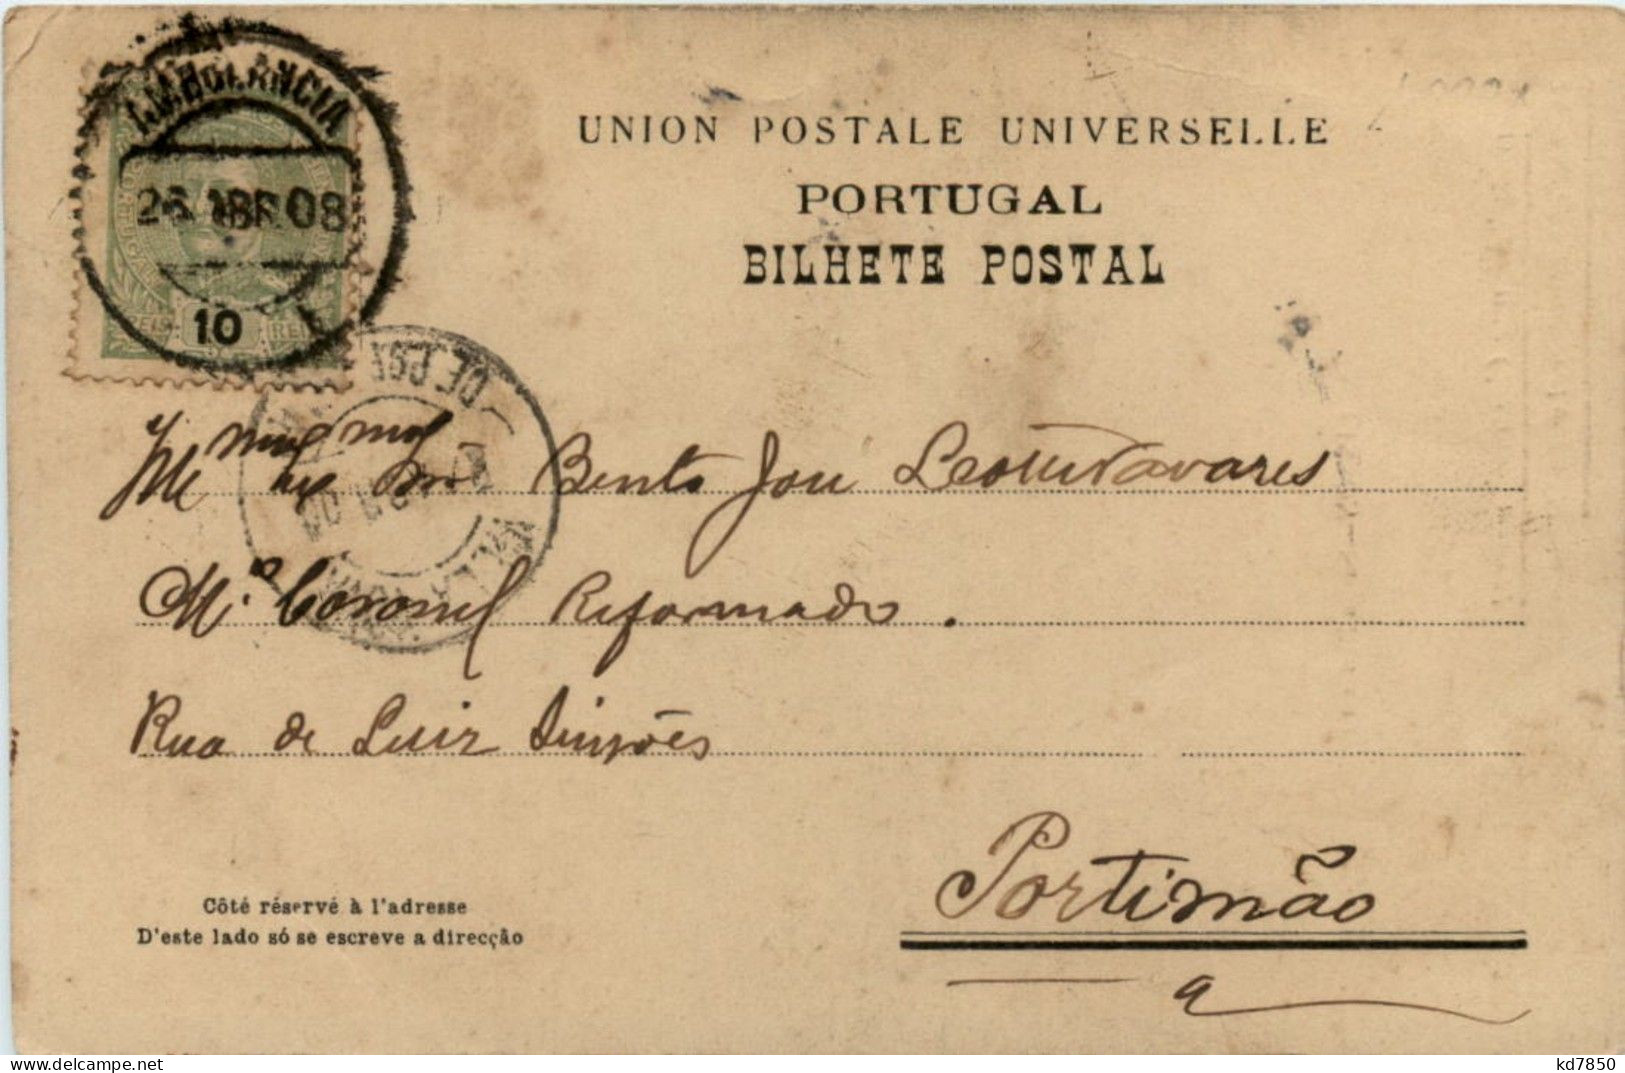 AMBULANCIA
26 ABR.08
10
REIS
UNION POSTALE UNIVERSELLE
PORTUGAL
BILHETE POSTAL
Bento José Tavares
Mº Coronel Reformado.
Rua de Luiz Simões
Portimão
Côté réservé à l'adresse
D'este lado só se escreve a direcção
www.delcampe.net
kd7850